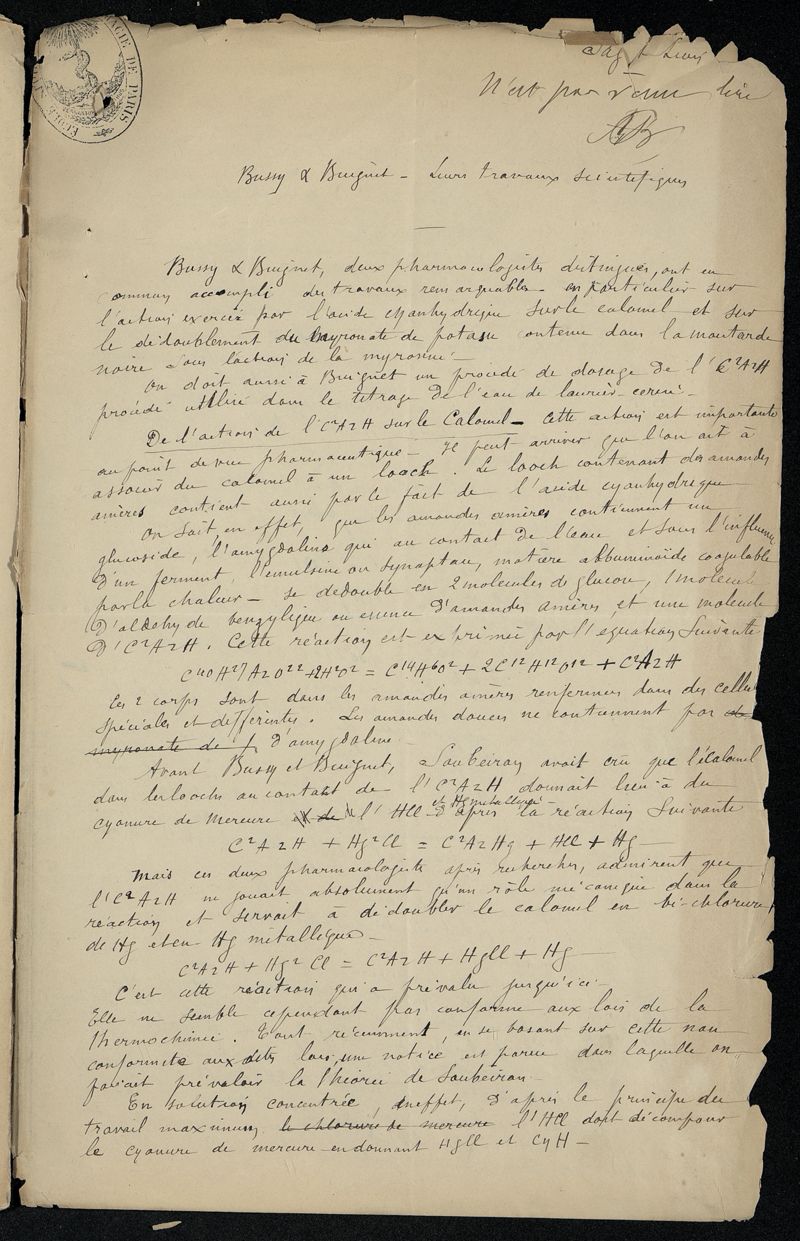 MACIE DE PARIS
ECOLE
N'est pas venu lire
AB
Bussy & Buignet - Leurs travaux scientifiques
Bussy & Buignet, deux pharmacologistes distingués, ont en
commun accompli des travaux remarquables - en particulier sur
l'action exercée par l'acide cyanhydrique sur le calomel et sur
le dédoublement du myronate de potasse contenu dans la moutarde
noire sous l'action de la myrosine -
On doit aussi à Buignet un procédé de dosage de l'C²A2H
procédé utilisé dans le titrage de l'eau de laurier-cerise -
De l'action de l'C²A2H sur le Calomel - Cette action est importante
au point de vue pharmaceutique - Il peut arriver que l'on ait à
associer du calomel à un looch. Le looch contenant des amandes
amères contient aussi par le fait de l'acide cyanhydrique
On sait, en effet, que les amandes amères contiennent un
glucoside, l'amygdaline qui au contact de l'eau et sous l'influence
d'un ferment, l'emulsine ou synaptase, matière albuminoïde coagulable
par la chaleur - se dédouble en 2 molecules de glucose, 1 molécule
d'aldehyde benzylique ou essence d'amandes amères et une molecule
d'C²A2H. Cette réaction est exprimée par l'equation suivante
C40H27A2O22 + 2H2O2 = C14H6O2 + 2C12H12O12 + C²A2H
Ces 2 corps sont dans les amandes amères renfermés dans des cellules
spéciales et differentes. Les amandes douces ne contiennent pas de
myronate de p. d'amygdaline -
Avant Bussy et Buignet, Soubeiran avait cru que l'Calomel
dans les loochs au contact de l'C²A2H donnait lieu à du
cyanure de mercure de l'HCl et Hg métallique d'après la réaction suivante
C²A2H + Hg²Cl = C²A2Hg + HCl + Hg
Mais ces deux pharmacologistes après recherches, admirent que
l'C²A2H ne jouait absolument qu'un rôle mécanique dans la
réaction et servait à dédoubler le calomel en bi-chlorure
de Hg et en Hg métallique -
C²A2H + Hg²Cl = C²A2H + HgCl + Hg
C'est cette réaction qui a prévalu jusqu'ici.
Elle ne semble cependant pas conforme aux lois de la
thermochimie. Tout récemment, en se basant sur cette non
conformité aux dites lois, une notice est parue dans laquelle on
faisait prévaloir la théorie de Soubeiran -
En solution concentrée, en effet, d'après le principe du
travail maximum, le chlorure de mercure l'HCl doit décomposer
le cyanure de mercure en donnant HgCl et CyH -